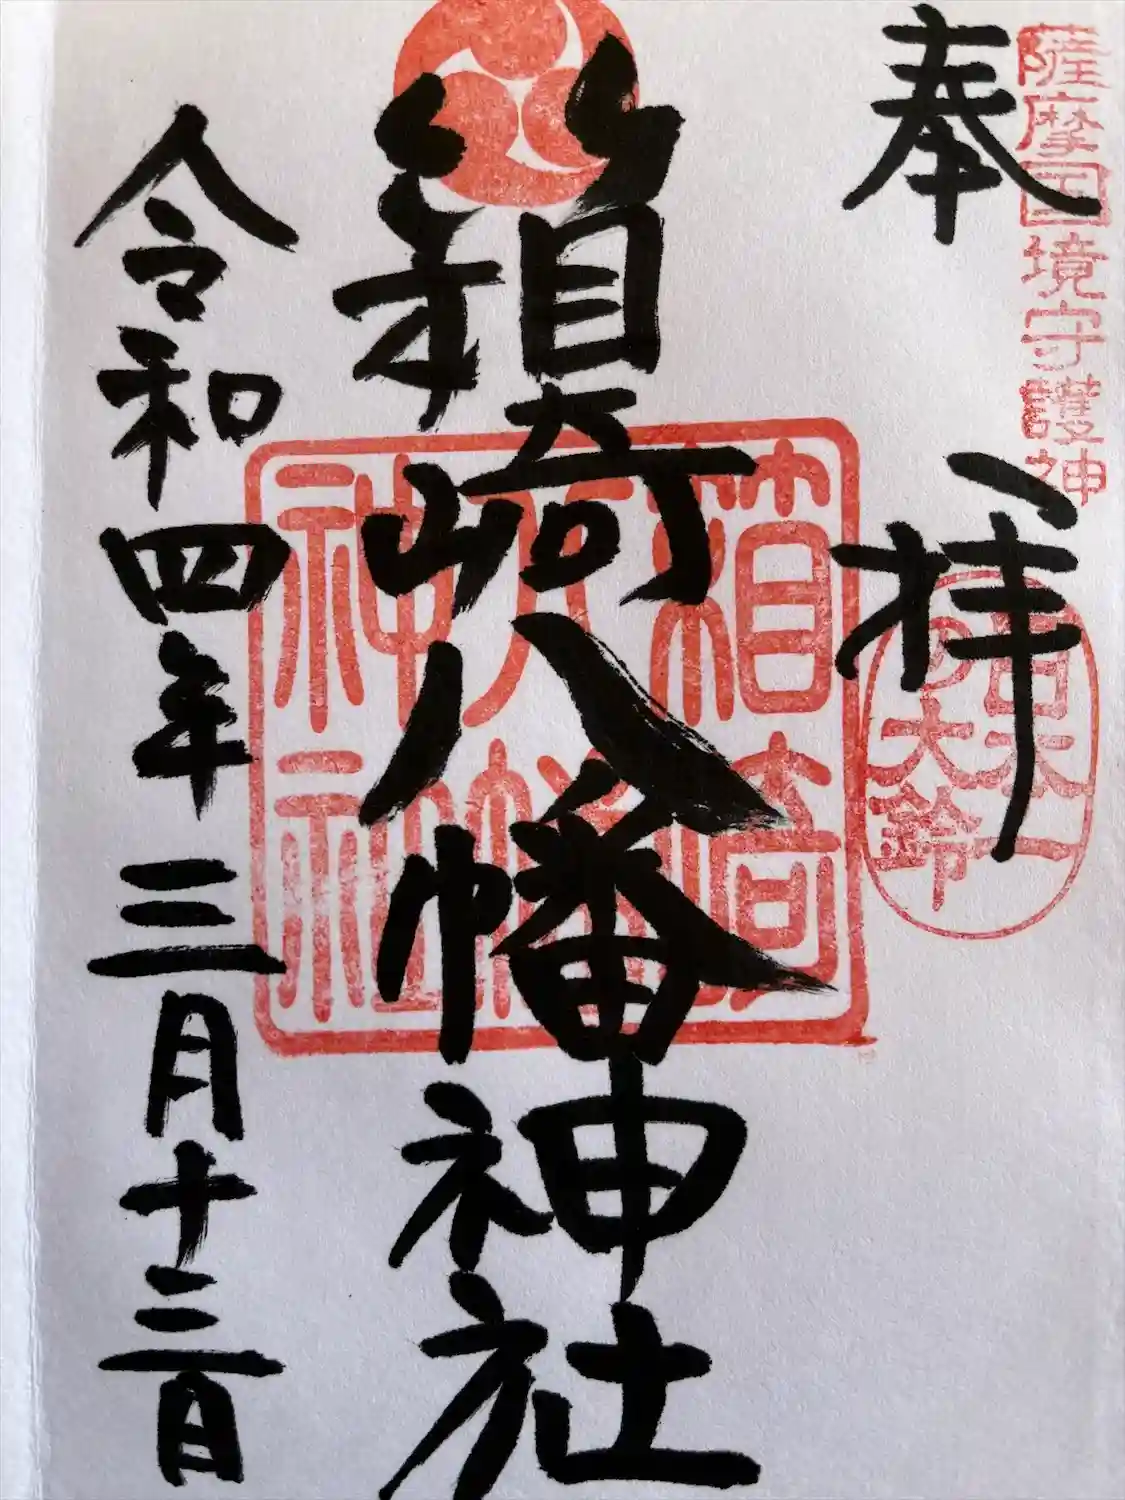 薩摩国境守護神
奉拝
日本一
の大鈴
箱崎八幡神社
箱崎
八幡
神社
令和四年三月十三日